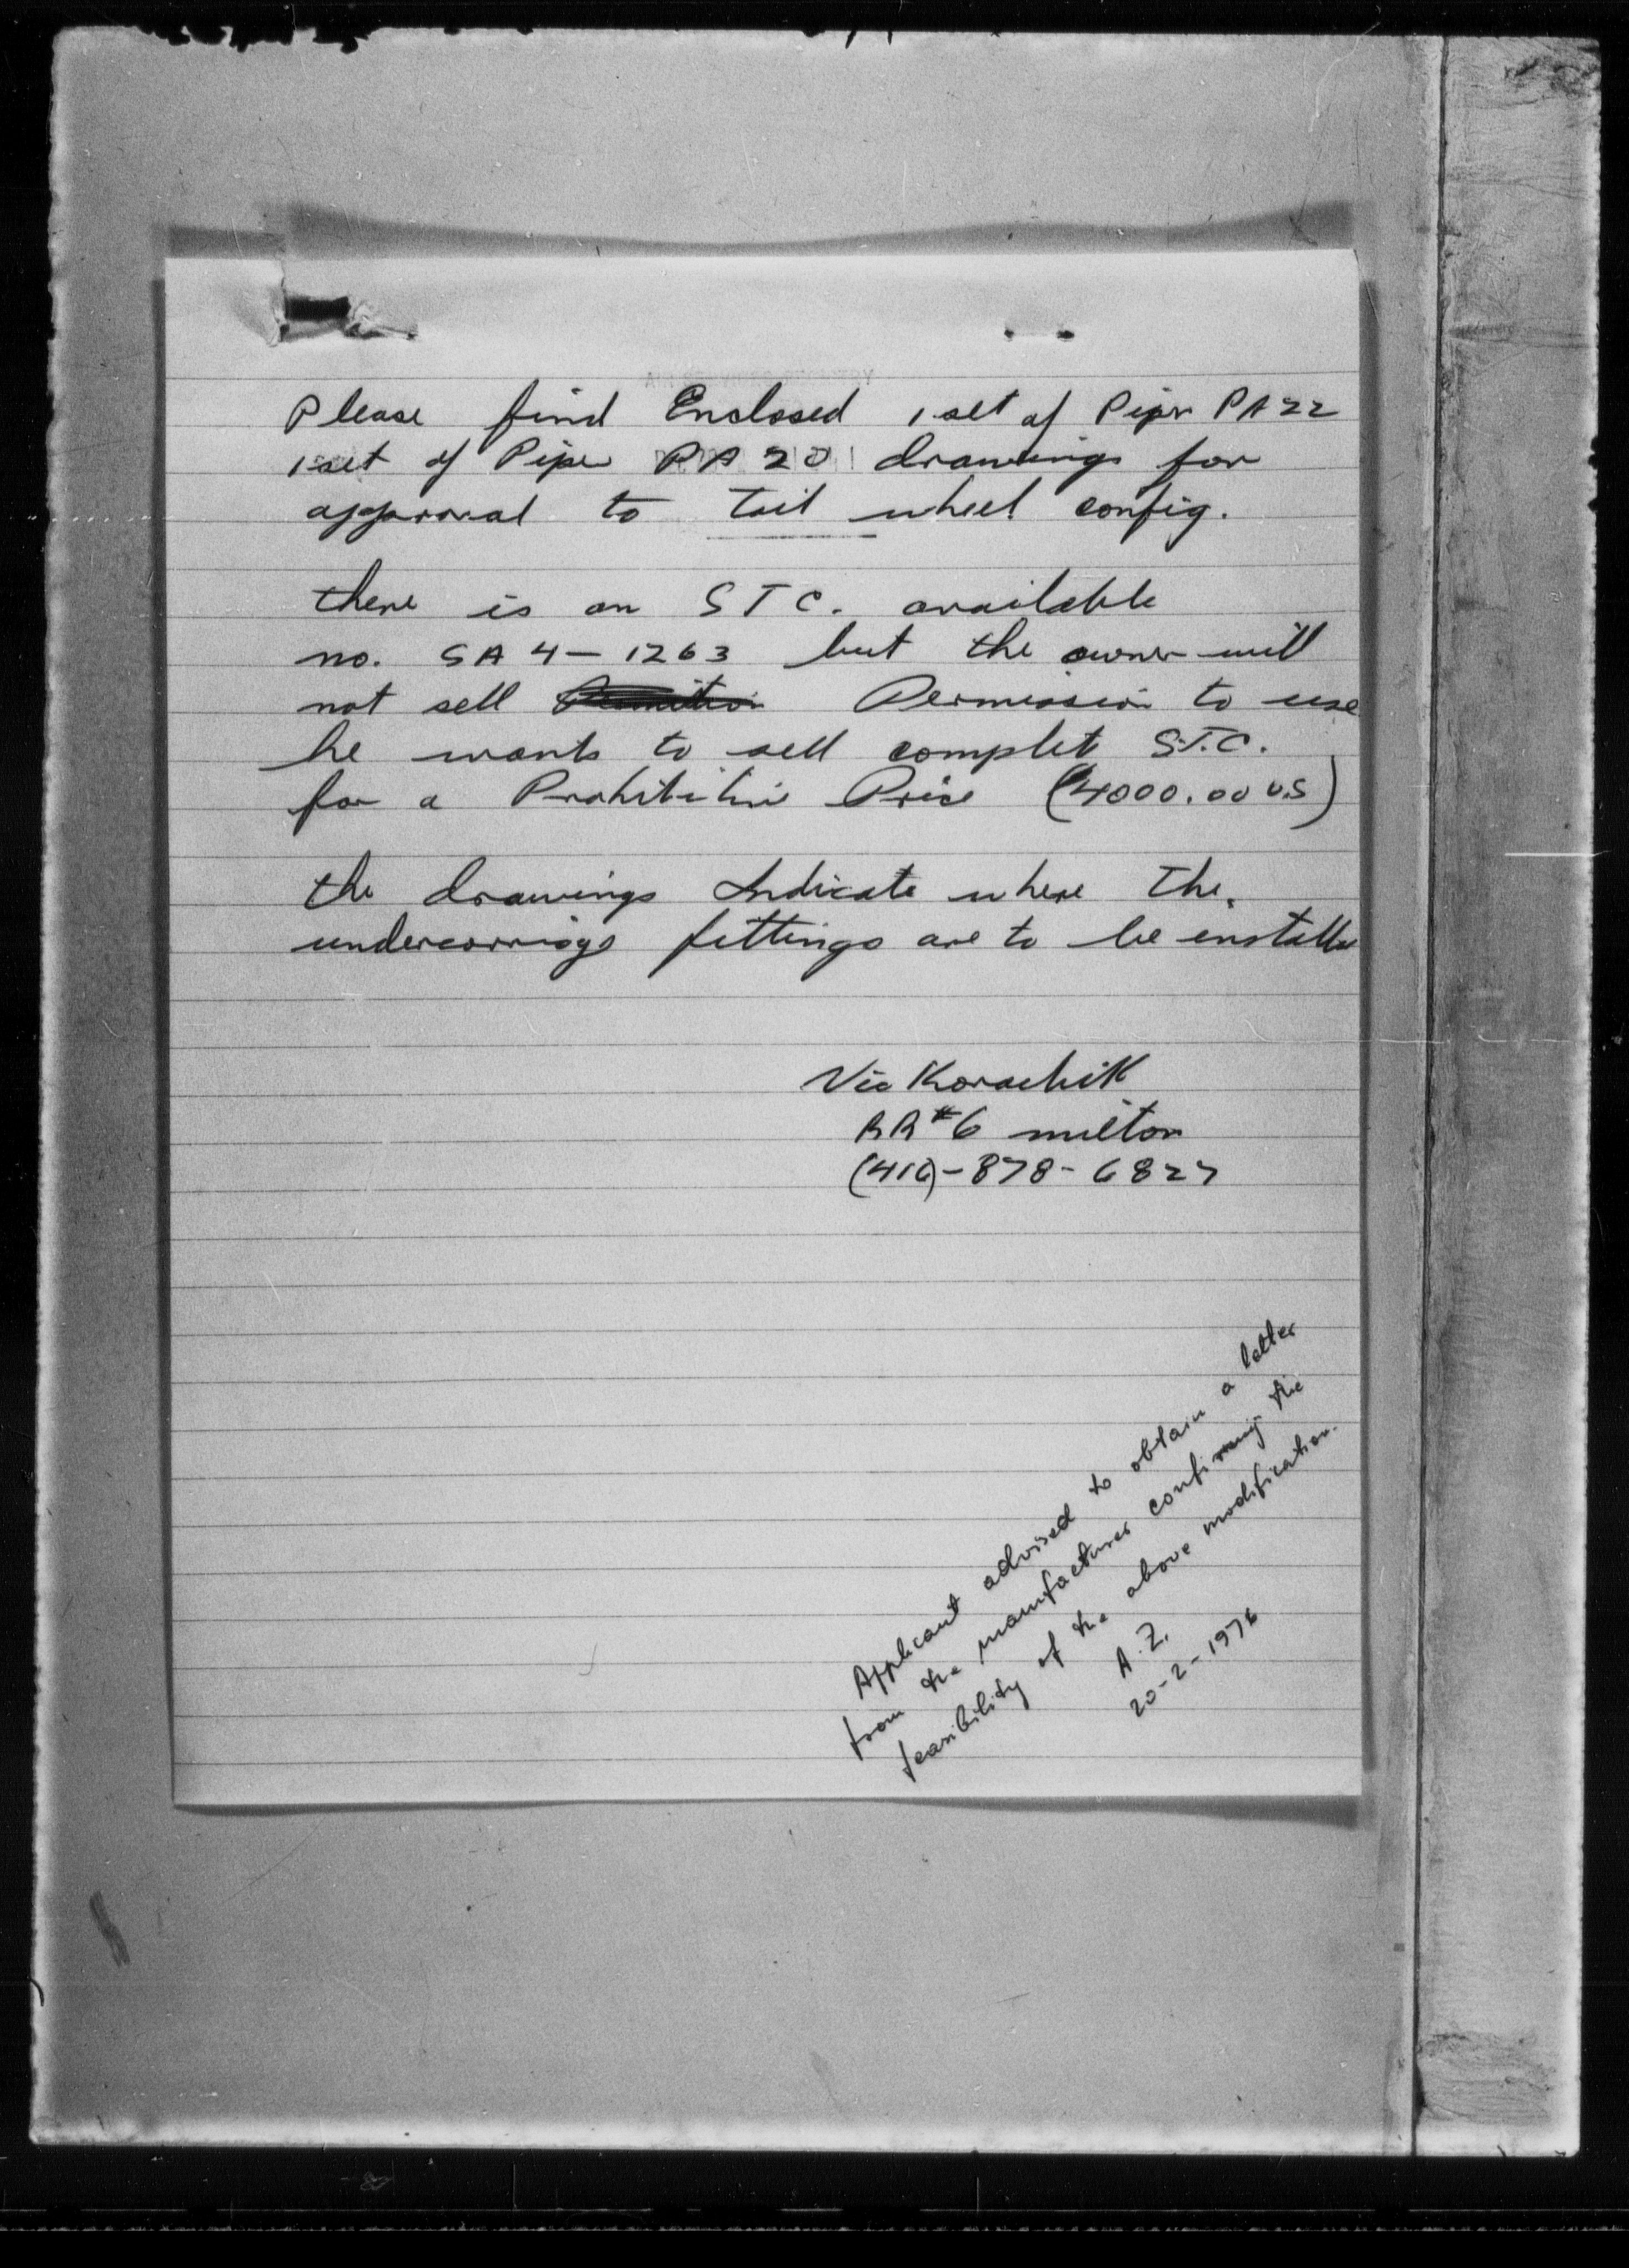 Please find Enclosed 1 set of Piper PA22
1 set of Piper PA20 drawings for
approval to tail wheel config.
there is an STC. available
no. SA4-1263 but the owner will
not sell Permission to use
he wants to sell complet S.T.C.
for a Prohibitive Price ($4000.00 US)
the drawings Indicate where the
undercarriage fittings are to be installed
Vic Korachik
RR #6 milton
(416)-878-6827
Applicant advised to obtain a letter
from the manufacturer confirming the
feasibility of the above modification.
A.Z.
20-2-1976